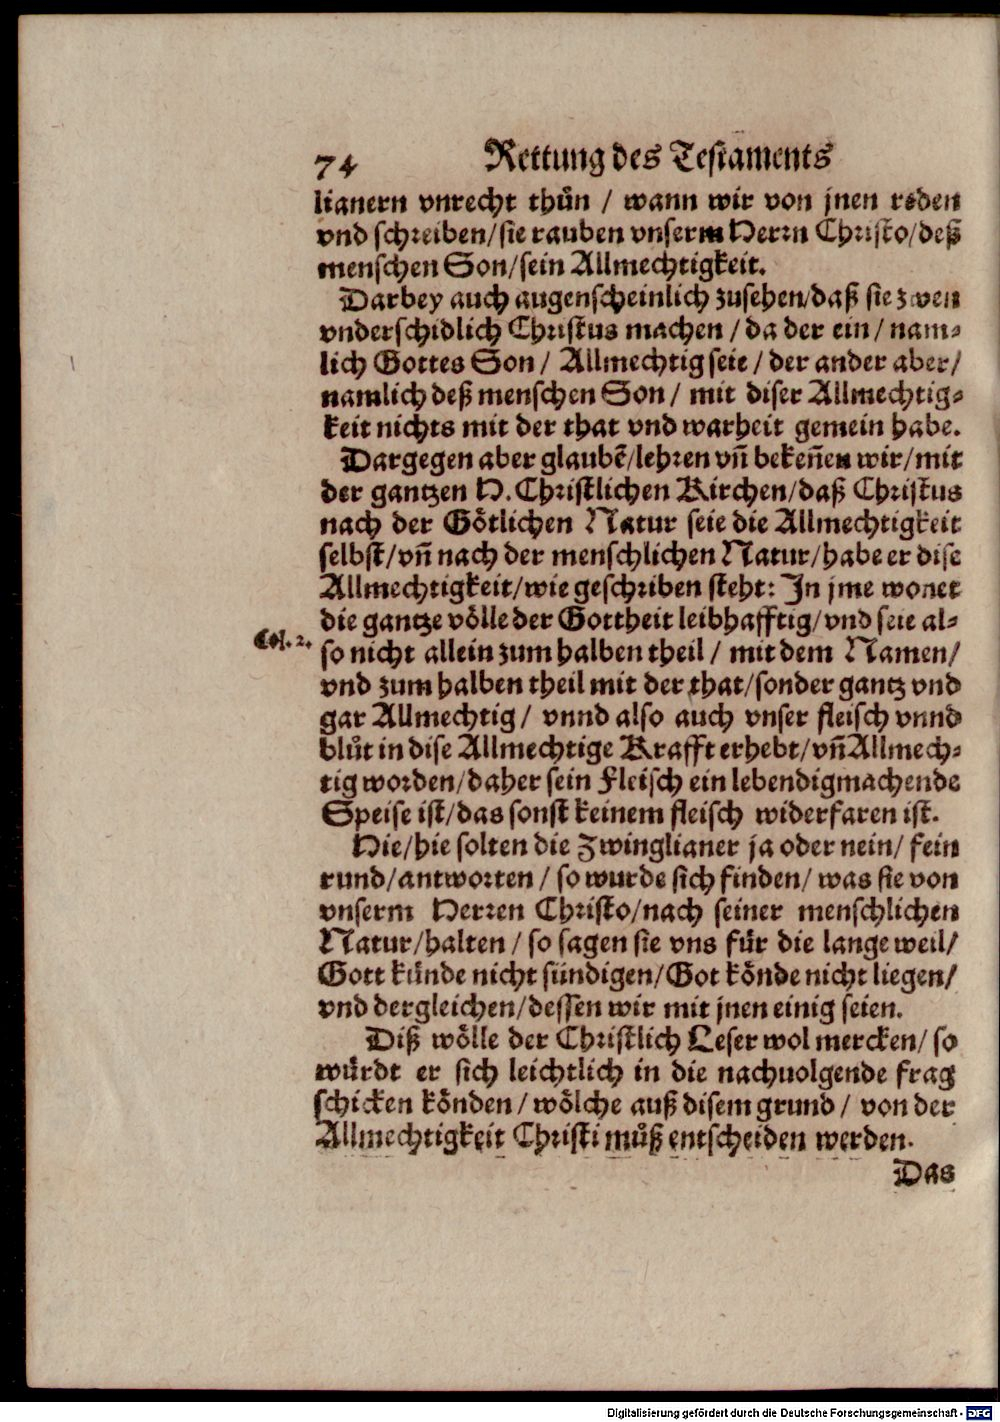 74 Rettung des Testaments
lianern vnrecht thůn / wann wir von jnen reden
vnd schreiben/sie rauben vnserm Herrn Christo/deß
menschen Son/sein Allmechtigkeit.
Darbey auch augenscheinlich zusehen/daß sie zwen
vnderschidlich Christus machen / da der ein / nam-
lich Gottes Son / Allmechtig seie / der ander aber/
namlich deß menschen Son / mit diser Allmechtig-
keit nichts mit der that vnd warheit gemein habe.
Dargegen aber glaubẽ/lehren vñ bekeñen wir/mit
der gantzen H. Christlichen Kirchen/daß Christus
nach der Goͤtlichen Natur seie die Allmechtigkeit
selbst/vñ nach der menschlichen Natur/habe er dise
Allmechtigkeit/wie geschriben steht: In jme wonet
die gantze voͤlle der Gottheit leibhafftig/vnd seie al-
Col. 2.
so nicht allein zum halben theil / mit dem Namen/
vnd zum halben theil mit der that/sonder gantz vnd
gar Allmechtig / vnnd also auch vnser fleisch vnnd
blůt in dise Allmechtige Krafft erhebt/vñ Allmech-
tig worden/daher sein Fleisch ein lebendigmachende
Speise ist/das sonst keinem fleisch widerfaren ist.
Hie/hie solten die Zwinglianer ja oder nein / fein
rund/antworten / so wurde sich finden/ was sie von
vnserm Herren Christo/nach seiner menschlichen
Natur/halten / so sagen sie vns fuͤr die lange weil/
Gott kuͤnde nicht suͤndigen/Got koͤnde nicht liegen/
vnd dergleichen/dessen wir mit jnen einig seien.
Diß woͤlle der Christlich Leser wol mercken/ so
wuͤrdt er sich leichtlich in die nachuolgende frag
schicken koͤnden / woͤlche auß disem grund / von der
Allmechtigkeit Christi můß entscheiden werden.
Das
Digitalisierung gefördert durch die Deutsche Forschungsgemeinschaft - DFG